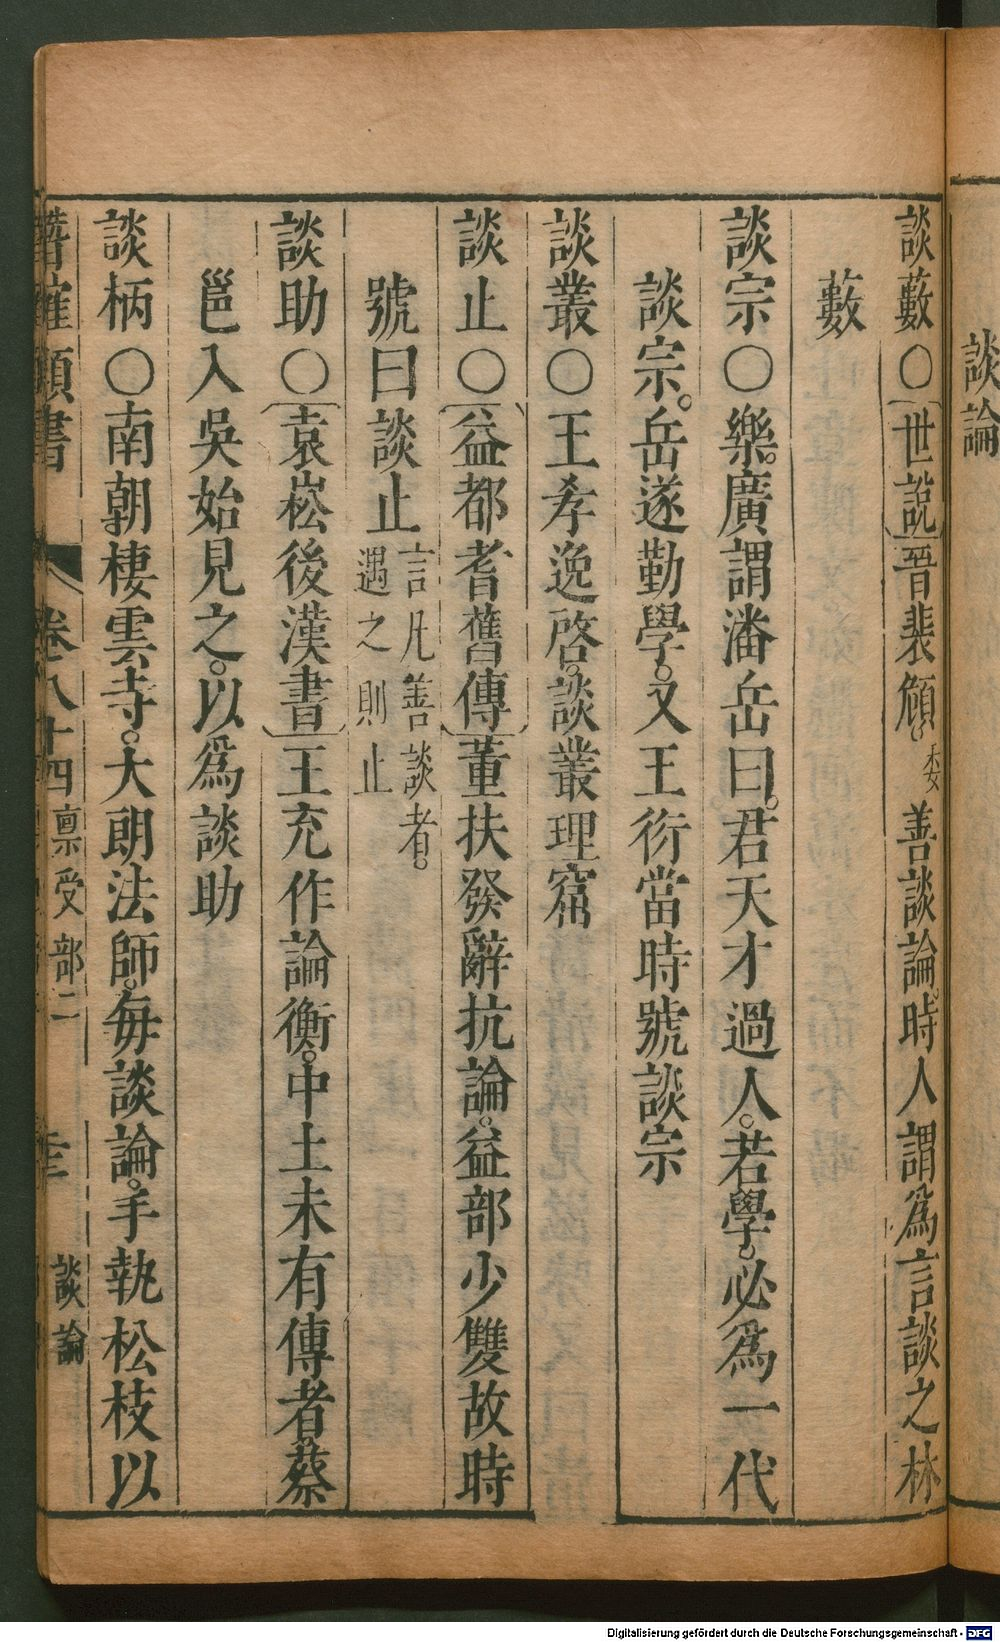 談論
談藪○世說晉裴頠委善談論。時人謂爲言談之林
藪
談宗○樂廣謂潘岳曰。君天才過人。若學。必爲一代
談宗。岳遂勤學。又王衍當時號談宗
談叢○王孝逸啓。談叢理窟
談止○益都耆舊傳董扶發辭抗論。益部少雙故時
號曰談止言凡善談者。遇之則止
談助○袁崧後漢書王充作論衡。中土未有傳者。蔡
邕入吳始見之。以爲談助
談柄○南朝棲雲寺。大朗法師。每談論。手執松枝以
潛確類書 卷八十四稟受部二 談論
Digitalisierung gefördert durch die Deutsche Forschungsgemeinschaft - DFG